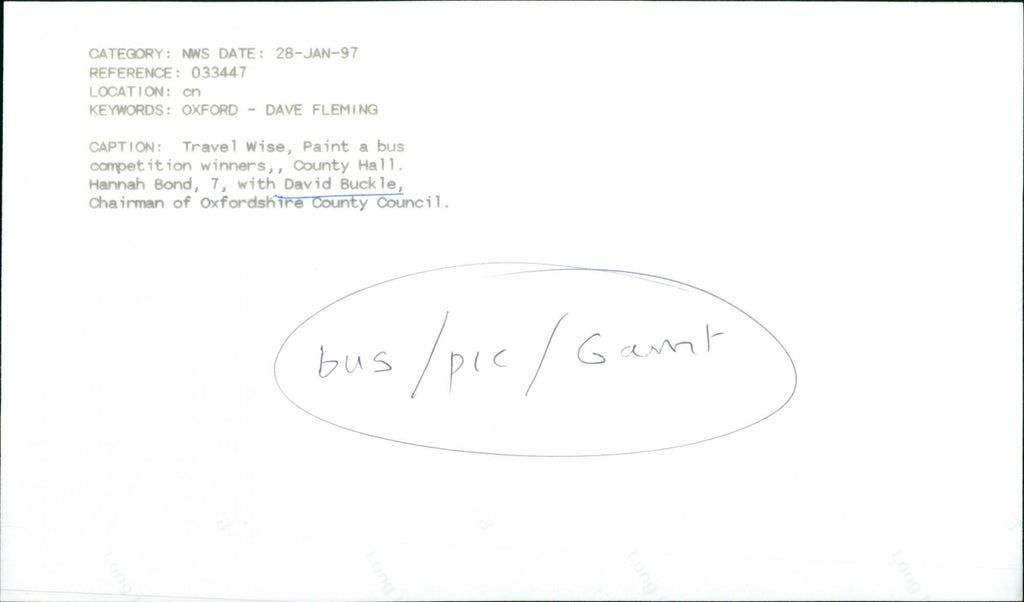 CATEGORY: NWS DATE: 28-JAN-97
REFERENCE: 033447
LOCATION: cn
KEYWORDS: OXFORD - DAVE FLEMING
CAPTION: Travel Wise, Paint a bus
competition winners,, County Hall.
Hannah Bond, 7, with David Buckle,
Chairman of Oxfordshire County Council.
bus/pic/